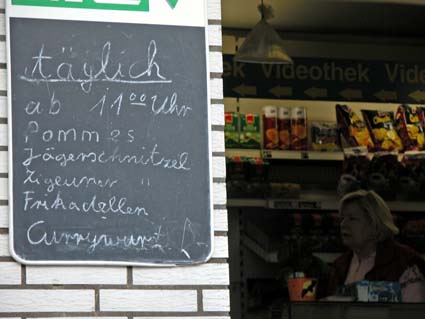 täglich
ab 11⁰⁰ Uhr
Pommes
Jägerschnitzel
Zigeuner "
Frikadellen
Currywurst
k Videothek Vide